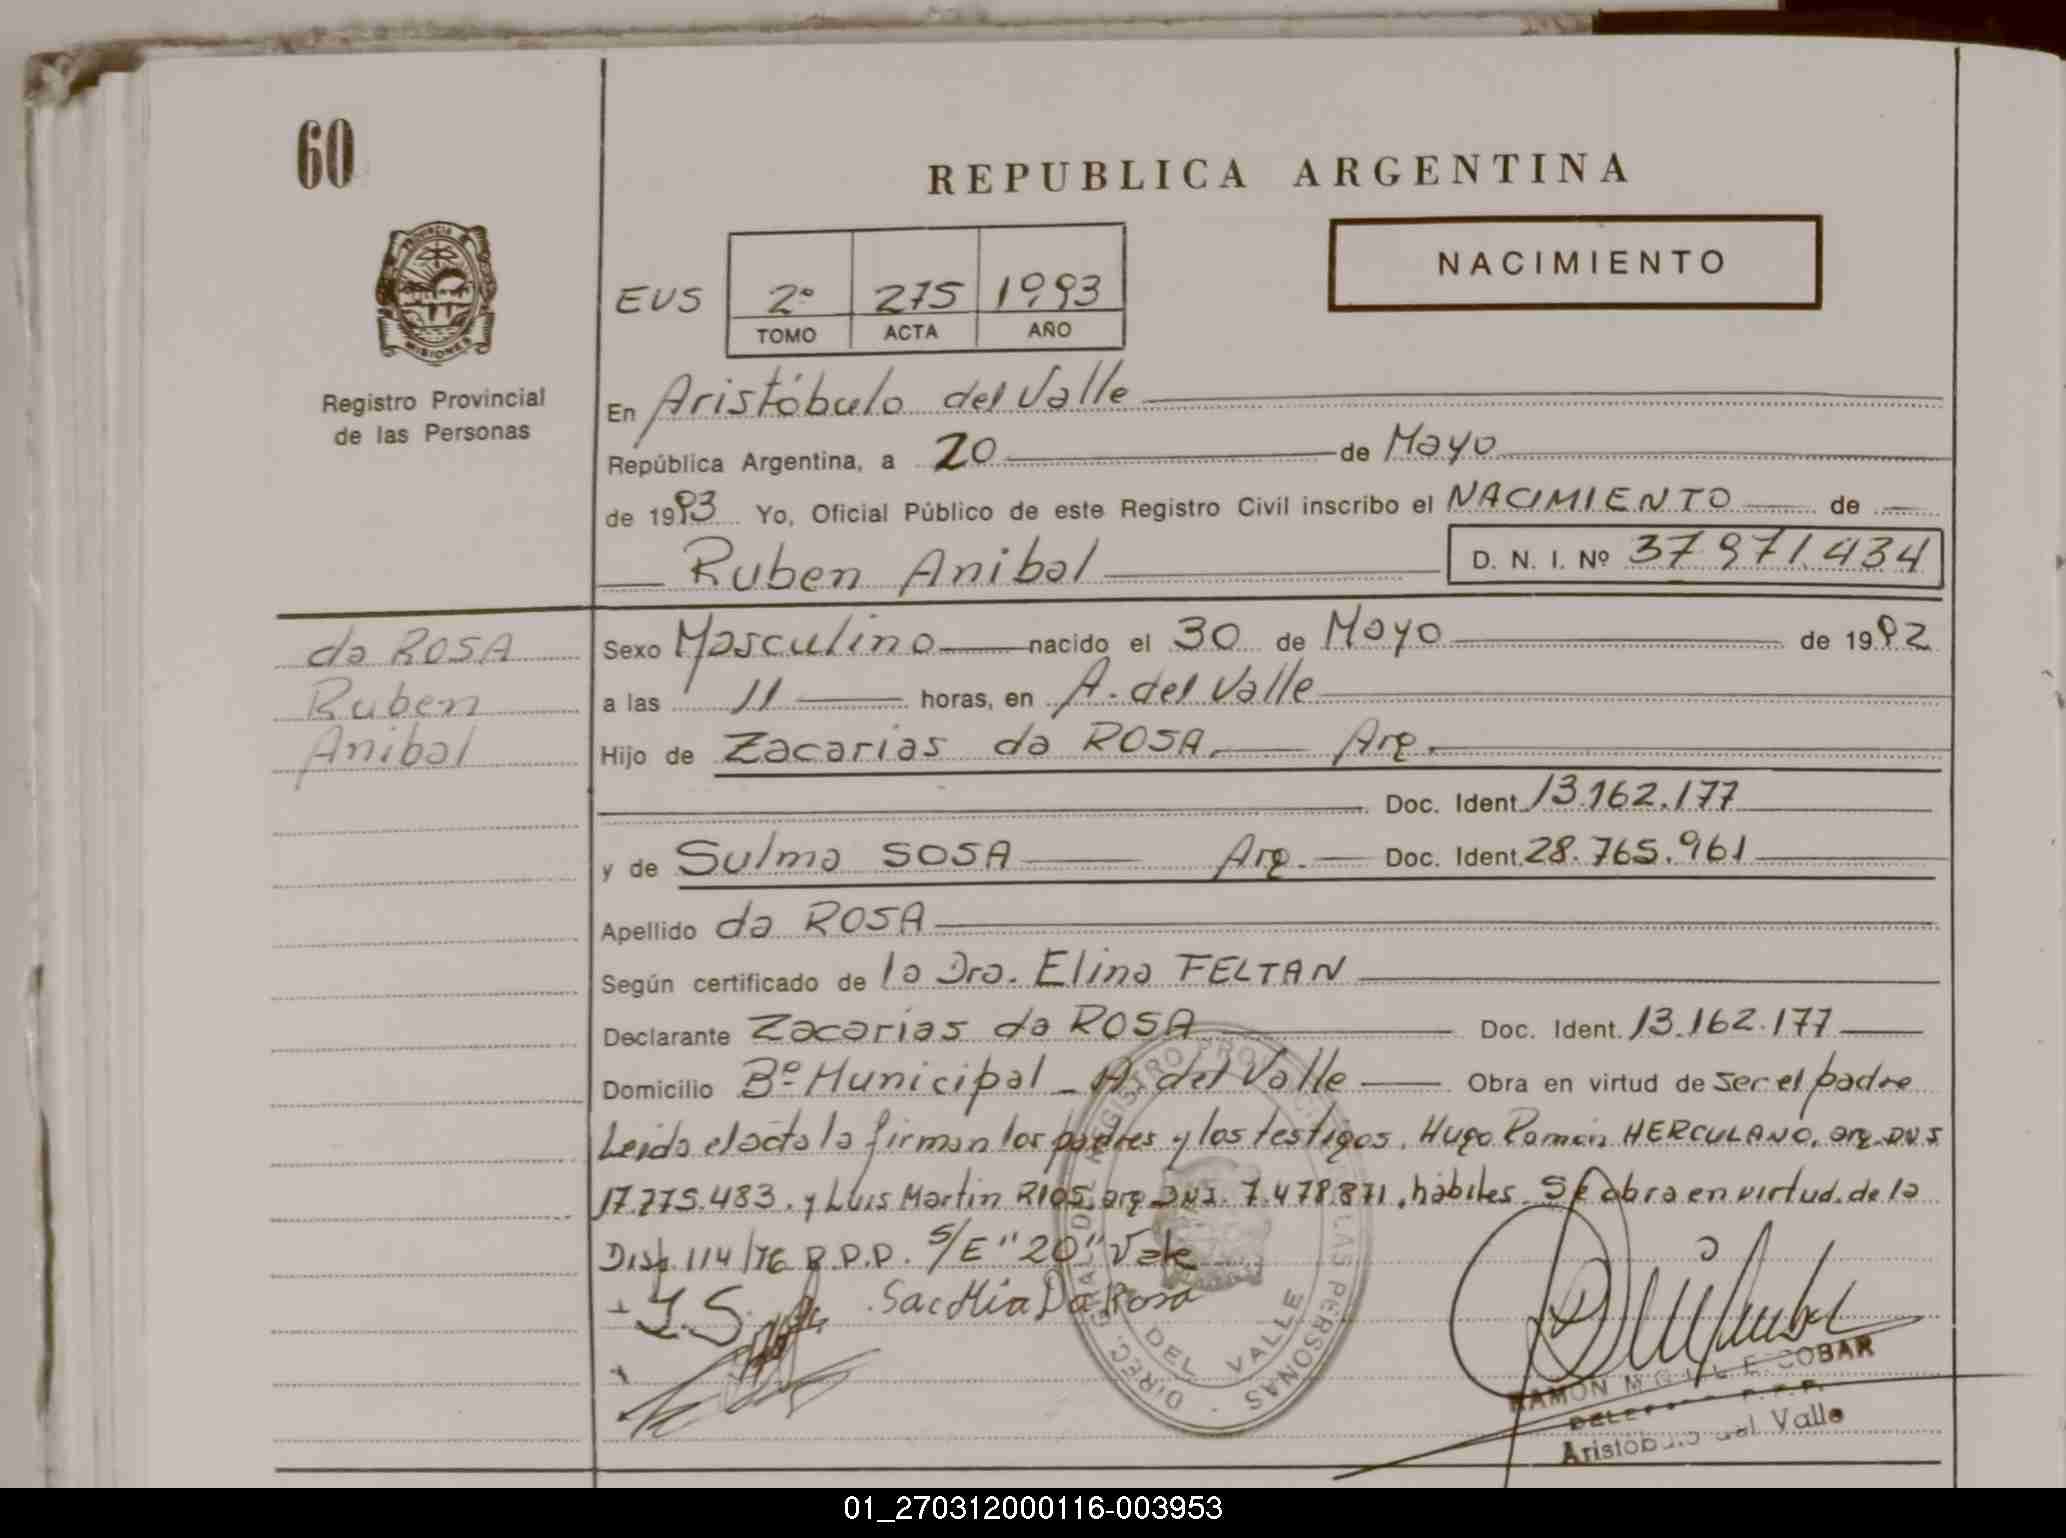 60
REPUBLICA ARGENTINA
NACIMIENTO
PROVINCIA D
MISIONES
Registro Provincial
de las Personas
EUS 2º 275 1993
TOMO ACTA AÑO
En Aristóbulo del Valle
República Argentina, a 20 de Mayo
de 1993 Yo, Oficial Público de este Registro Civil inscribo el NACIMIENTO de
Ruben Anibal D. N. I. Nº 37.971.434
da ROSA
Ruben
Anibal
Sexo Masculino nacido el 30 de Mayo de 1992
a las 11 horas, en A. del Valle
Hijo de Zacarias da ROSA. Arg.
Doc. Ident. 13.162.177
y de Sulma SOSA Arg. Doc. Ident. 28.765.961
Apellido da ROSA
Según certificado de la Dra. Elina FELTAN
Declarante Zacarias da ROSA Doc. Ident. 13.162.177
Domicilio Bº Municipal - A. del Valle Obra en virtud de ser el padre
Leida el acta la firman los padres y los testigos. Hugo Ramón HERCULANO, arg. DNI
17.275.483. y Luis Martin RIOS arg. DNI. 7.478.871. hábiles. Se obra en virtud de la
Disp. 114/76 R.P.P. S/E "20" Vale
Da Rosa
DIREC. GRAL. DEL REGISTRO PROVINC. LAS PERSONAS
DEL VALLE
RAMON M ESCOBAR
Aristóbulo del Valle
01_270312000116-003953